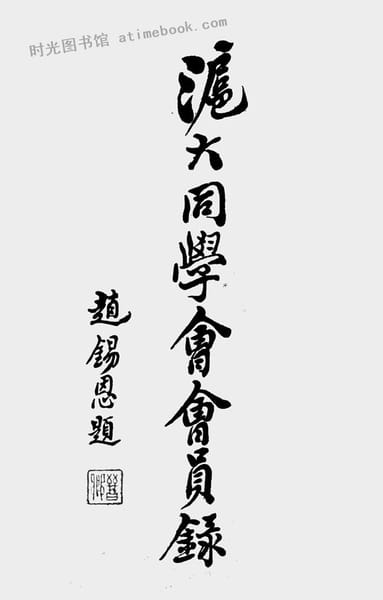 时光图书馆 atimebook.com
滬大同學會會員錄
趙錫恩題